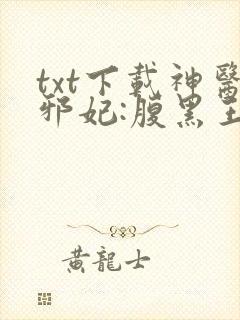 txt下載神醫
邪妃:腹黑王
黃龍士